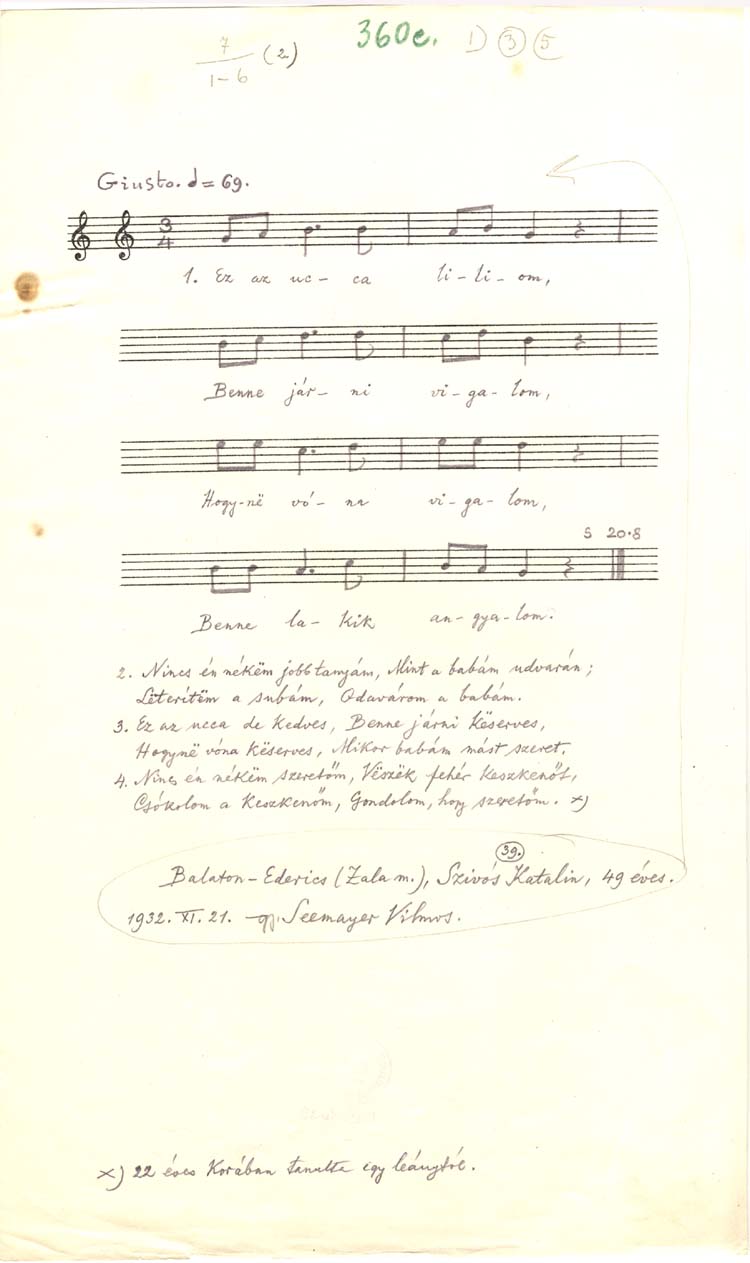 360e. 1) 3 5
7
1-6 (2)
Giusto. = 69.
3
4
1. Ez az uc- ca li-li-om,
Benne jár- ni vi-ga-lom,
Hogy-në vó- na vi-ga-lom,
S 20.8
Benne la-kik an-gya-lom.
2. Nincs én nékëm jobb tanyám, Mint a babám udvarán;
Lëterítëm a subám, Odavárom a babám.
3. Ez az ucca de kedves, Benne járni këserves,
Hogynë vóna këserves, Mikor babám mást szeret.
4. Nincs én nékëm szeretőm, Vëszëk fehér keszkenőt,
Csókolom a keszkenőm, Gondolom, hogy szeretőm. x)
39.
Balaton-Ederics (Zala m.), Szívós Katalin, 49 éves.
1932. XI. 21. gy. Seemayer Vilmos.
x) 22 éves korában tanulta egy leánytól.